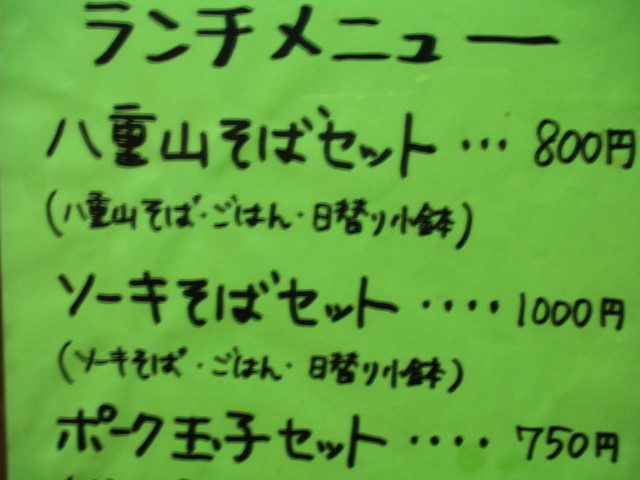 ランチメニュー
八重山そばセット … 800円
(八重山そば・ごはん・日替り小鉢)
ソーキそばセット ‥‥ 1000円
(ソーキそば・ごはん・日替り小鉢)
ポーク玉子セット ‥‥ 750円